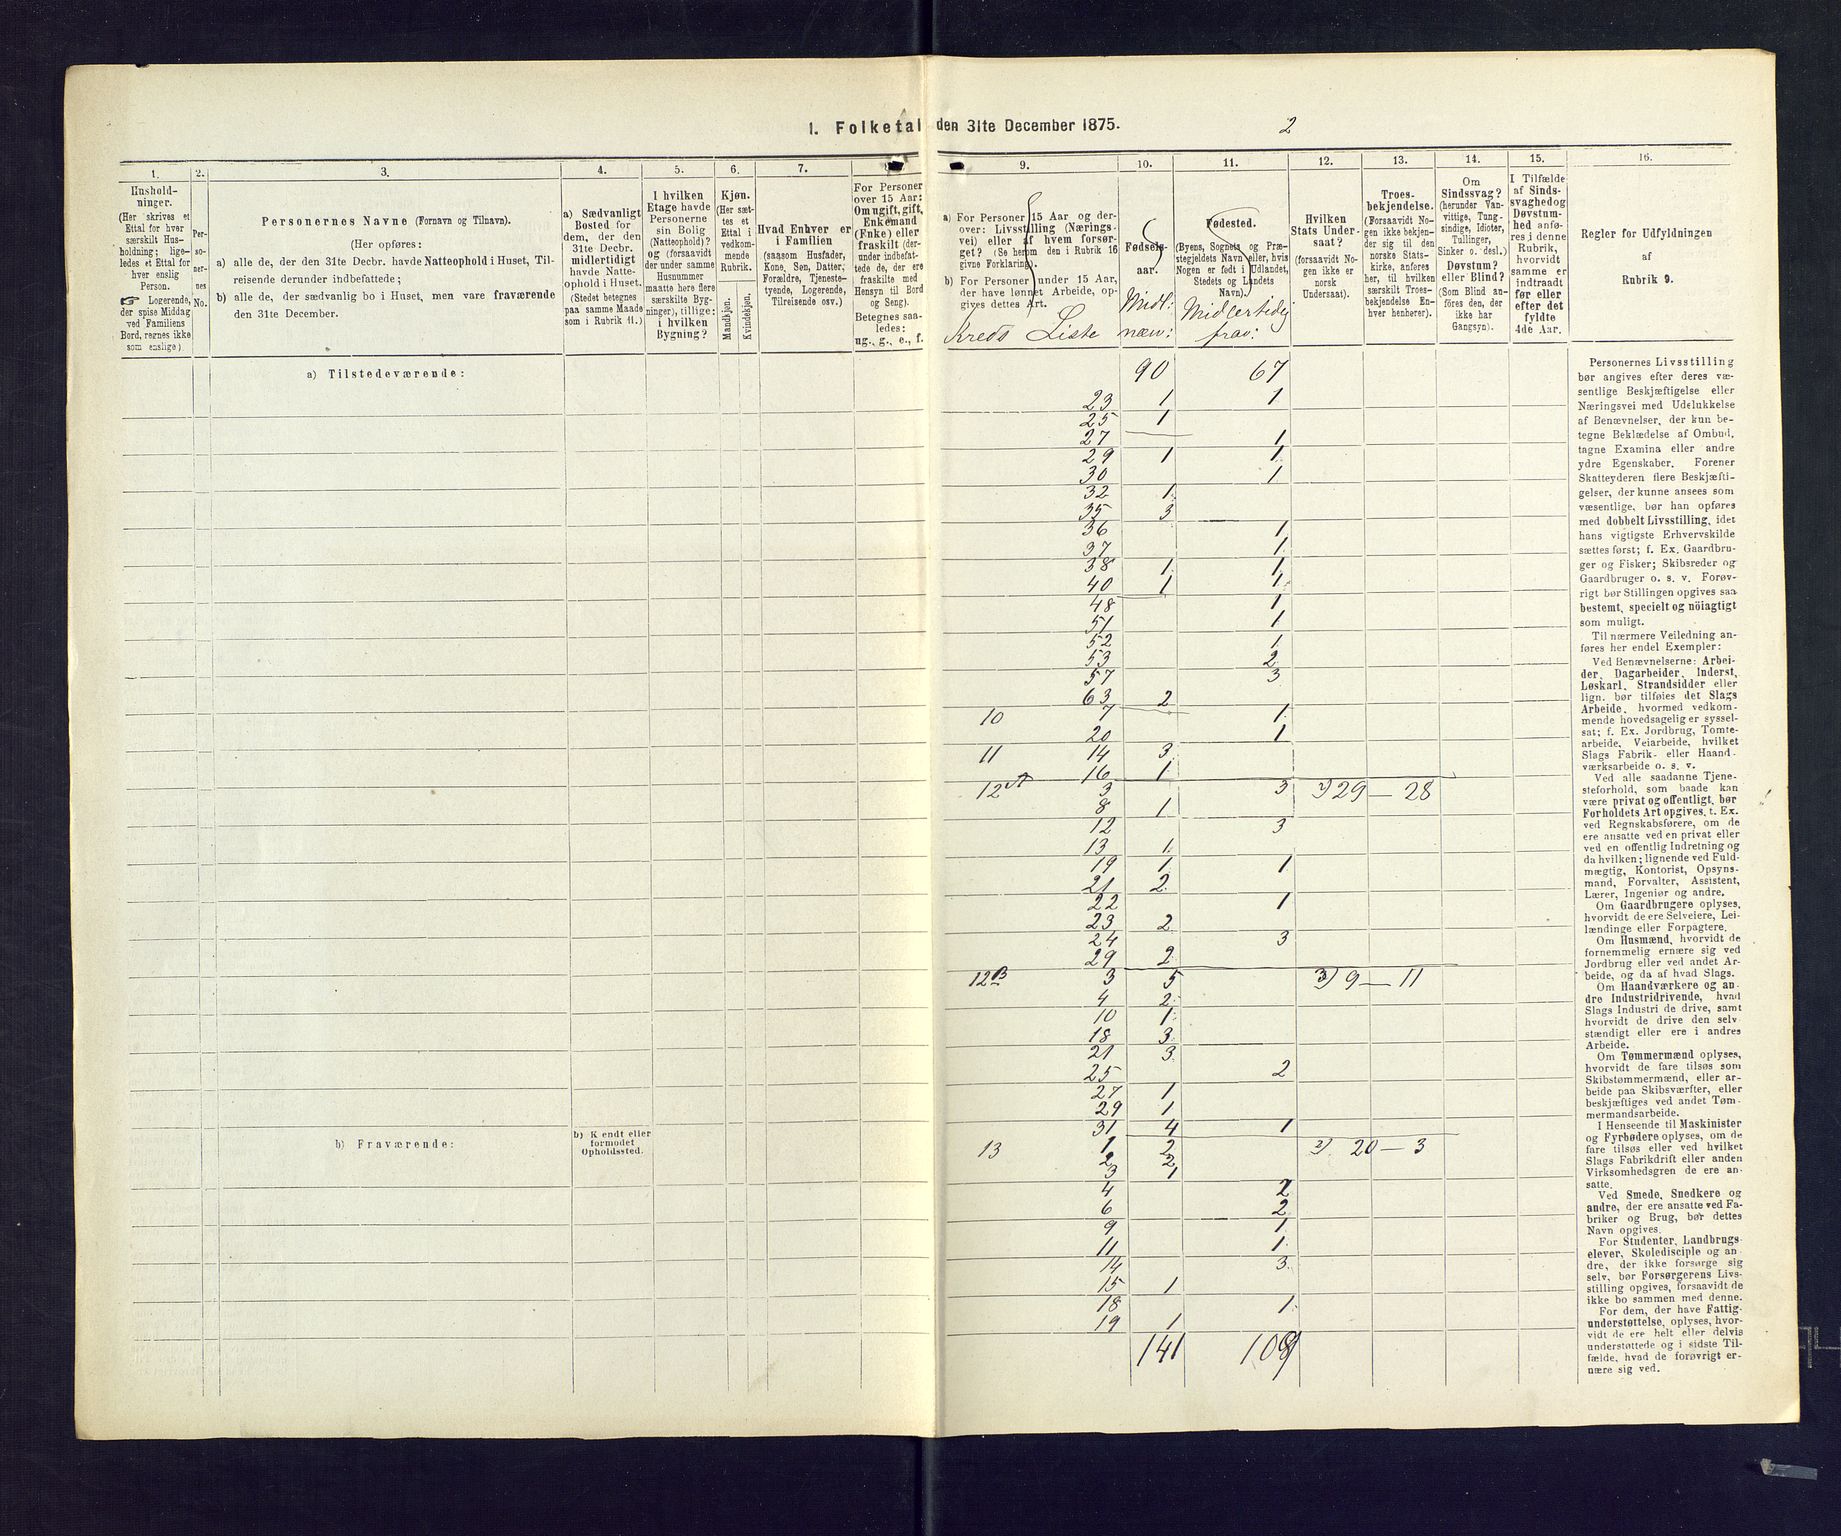 1. Folketal den 31te December 1875.
2
1.
2.
3.
4.
5.
6.
7.
9.
10.
11.
12.
13.
14.
15.
16.
Hushold-
ninger.
(Her skrives et
Ettal for hver
særskilt Hus-
holdning; lige-
ledes et Ettal for
hver enslig
Person.
☞ Logerende,
der spise Middag
ved Familiens
Bord, regnes ikke
som enslige).
Per-
so-
ner-
nes
No.
Personernes Navne (Fornavn og Tilnavn).
(Her opføres:
a) alle de, der den 31te Decbr. havde Natteophold i Huset, Til-
reisende derunder indbefattede;
b) alle de, der sædvanlig bo i Huset, men vare fraværende
den 31te December.
a) Sædvanligt
Bosted for
dem, der den
31te Decbr.
midlertidigt
havde Natte-
ophold i Huset.
(Stedet betegnes
paa samme Maade
som i Rubrik 11.)
I hvilken
Etage havde
Personerne
sin Bolig
(Natteophold)?
og (forsaavidt
der under samme
Husnummer
maatte høre flere
særskilte Byg-
ninger), tillige:
i hvilken
Bygning?
Kjøn.
(Her sæt-
tes et
Ettal i
vedkom-
mende
Rubrik.
Mandkjøn.
Kvindekjøn.
Hvad Enhver er
i Familien
(saasom Husfader,
Kone, Søn, Datter,
Forældre, Tjeneste-
tyende, Logerende,
Tilreisende osv.)
For Personer
over 15 Aar:
Om ugift, gift,
Enkemand
(Enke) eller
fraskilt (der-
under indbefat-
tede de, der ere
fraskilte med
Hensyn til Bord
og Seng).
Betegnes saa-
ledes:
ug., g., e., f.
a) For Personer 15 Aar og der-
over: Livsstilling (Nærings-
vei) eller af hvem forsør-
get? (Se herom den i Rubrik 16
givne Forklaring).
b) For Personer under 15 Aar,
der have lønnet Arbeide, op-
gives dettes Art.
Kreds Liste
Fødsels-
aar.
Midl:
nærv:
Fødested.
(Byens, Sognets og Præ-
stegjeldets Navn eller, hvis
Nogen er født i Udlandet,
Stedets og Landets
Navn).
Midlertidig
frav:
Hvilken
Stats Under-
saat?
(forsaavidt No-
gen ikke er
norsk
Undersaat).
Troes-
bekjendelse.
(Forsaavidt No-
gen ikke bekjen-
der sig til den
norske Stats-
kirke, anføres
her, til hvilken
særskilt Troes-
bekjendelse En-
hver henhører).
Om
Sindssvag?
(herunder Van-
vittige, Tung-
sindige, Idioter,
Tullinger,
Sinker o. desl.)
Døvstum?
eller Blind?
(Som Blind an-
føres den, der
ikke har
Gangsyn).
I Tilfælde
af Sinds-
svaghed og
Døvstum-
hed anfø-
res i denne
Rubrik,
hvorvidt
samme er
indtraadt
før eller
efter det
fyldte
4de Aar.
Regler for Udfyldningen
af
Rubrik 9.
a) Tilstedeværende:
90 67
23 1 1
25 1
27 1
29 1 1
30 1
32 1
35 3
36 1
37 1
38 1 1
40 1 1
48 1
51 1
52 1
53 2
57 3
63 2
10 7 1
20 1
11 14 3
16 1
12 A 3 3 2) 29 — 28
8 1
12 3
13 1
19 1 1
21 2
22 1
23 2
24 3
29 2
12 B 3 5 3) 9 — 11
4 2
10 1
18 3
21 3
25 2
27 1
29 1
31 4 1
13 1 2 2) 20 — 3
2 2
3 1
4 2
6 2
9 1
11 1
14 3
15 1
18 1
19 1
141 108
b) Fraværende:
b) Kjendt eller
formodet
Opholdssted.
Personernes Livsstilling
bør angives efter deres væ-
sentlige Beskjæftigelse eller
Næringsvei med Udelukkelse
af Benævnelser, der kun be-
tegne Beklædelse af Ombud,
tagne Examina eller andre
ydre Egenskaber. Forener
Skatteyderen flere Beskjæfti-
gelser, der kunne ansees som
væsentlige, bør han opføres
med dobbelt Livsstilling, idet
hans vigtigste Erhvervskilde
sættes først; f. Ex. Gaardbru-
ger og Fisker; Skibsreder og
Gaardbruger o. s. v. Forøv-
rigt bør Stillingen opgives saa
bestemt, specielt og nöiagtigt
som muligt.
Til nærmere Veiledning an-
føres her endel Exempler:
Ved Benævnelserne: Arbei-
der, Dagarbeider, Inderst,
Løskarl, Strandsidder eller
lign. bør tilføies det Slags
Arbeide, hvormed vedkom-
mende hovedsagelig er syssel-
sat; f. Ex. Jordbrug, Tomte-
arbeide, Veiarbeide, hvilket
Slags Fabrik- eller Haand-
værksarbeide o. s. v.
Ved alle saadanne Tjene-
steforhold, som baade kan
være privat og offentligt, bør
Forholdets Art opgives, t. Ex.
ved Regnskabsførere, om de
ere ansatte ved en privat eller
ved en offentlig Indretning og
da hvilken; lignende ved Fuld-
mægtig, Kontorist, Opsyns-
mand, Forvalter, Assistent,
Lærer, Ingeniør og andre.
Om Gaardbrugere oplyses,
hvorvidt de ere Selveiere, Lei-
lændinge eller Forpagtere.
Om Husmænd, hvorvidt de
fornemmelig ernære sig ved
Jordbrug eller ved andet Ar-
beide, og da af hvad Slags.
Om Haandværkere og an-
dre Industridrivende, hvad
Slags Industri de drive, samt
hvorvidt de drive den selv-
stændigt eller ere i andres
Arbeide.
Om Tømmermænd oplyses,
hvorvidt de fare tilsøs som
Skibstømmermænd, eller ar-
beide paa Skibsværfter, eller
beskjæftiges ved andet Tøm-
mermandsarbeide.
I Henseende til Maskinister
og Fyrbødere oplyses, om de
fare tilsøs eller ved hvilket
Slags Fabrikdrift eller anden
Virksomhedsgren de ere an-
satte.
Ved Smede, Snedkere og
andre, der ere ansatte ved Fa-
briker og Brug, bør dettes
Navn opgives.
For Studenter, Landbrugs-
elever, Skoledisciple og an-
dre, der ikke forsørge sig
selv, bør Forsørgerens Livs-
stilling opgives, forsaavidt de
ikke bo sammen med denne.
For dem, der have Fattig-
understøttelse, oplyses, hvor-
vidt de ere helt eller delvis
understøttede og i sidste Til-
fælde, hvad de forøvrigt er-
nære sig ved.